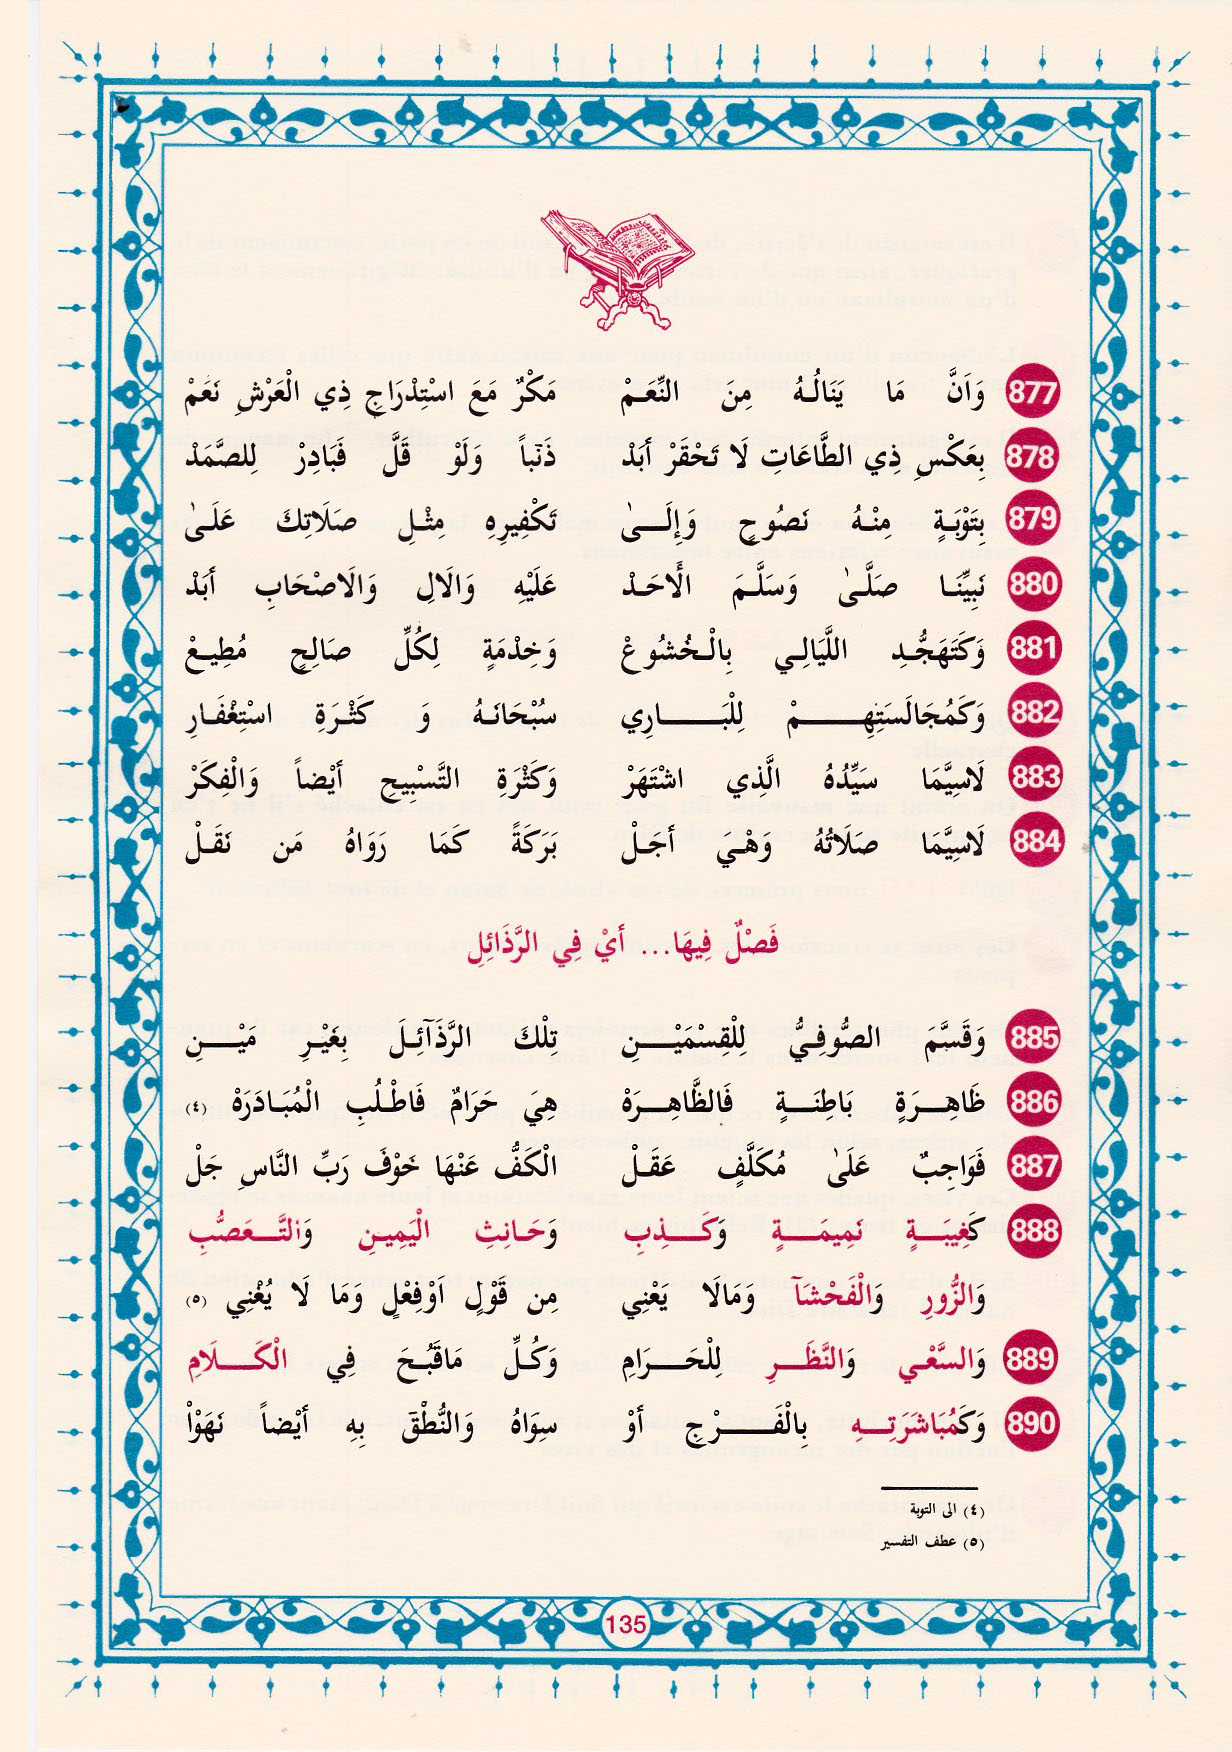 877 وَاَنَّ مَا يَنَالُهُ مِنَ النِّعَمْ مَكْرٌ مَعَ اسْتِدْرَاجِ ذِي الْعَرْشِ نَعَمْ
878 بِعَكْسِ ذِي الطَّاعَاتِ لَا تَحْقَرْ أَبَدْ ذَنْباً وَلَوْ قَلَّ فَبَادِرْ لِلصَّمَدْ
879 بِتَوْبَةٍ مِنْهُ نَصُوحٍ وَإِلَىٰ تَكْفِيرِهِ مِثْلِ صَلَاتِكَ عَلَىٰ
880 نَبِيِّنَا صَلَّىٰ وَسَلَّمَ الْأَحَدْ عَلَيْهِ وَالَالِ وَالَاصْحَابِ أَبَدْ
881 وَكَتَهَجُّدِ اللَّيَالِي بِالْخُشُوعْ وَخِدْمَةٍ لِكُلِّ صَالِحٍ مُطِيعْ
882 وَكَمُجَالَسَتِهِمْ لِلْبَارِي سُبْحَانَهُ وَ كَثْرَةِ اسْتِغْفَارِ
883 لَاسِيَّمَا سَيِّدُهُ الَّذِي اشْتَهَرْ وَكَثْرَةِ التَّسْبِيحِ أَيْضاً وَالْفِكَرْ
884 لَاسِيَّمَا صَلَاتُهُ وَهْيَ أَجَلْ بَرَكَةً كَمَا رَوَاهُ مَن نَقَلْ
فَصْلٌ فِيهَا... أَيْ فِي الرَّذَائِلِ
885 وَقَسَّمَ الصُّوفِيُّ لِلْقِسْمَيْنِ تِلْكَ الرَّذَآئِلَ بِغَيْرِ مَيْنِ
886 ظَاهِرَةٍ بَاطِنَةٍ فَالظَّاهِرَهْ هِيَ حَرَامٌ فَاطْلُبِ الْمُبَادَرَهْ (٤)
887 فَوَاجِبٌ عَلَىٰ مُكَلَّفٍ عَقَلْ الْكَفُّ عَنْهَا خَوْفَ رَبِّ النَّاسِ جَلْ
888 كَغِيبَةٍ نَمِيمَةٍ وَكَذِبِ وَحَانِثِ الْيَمِينِ وَالتَّعَصُّبِ
وَالزُّورِ وَالْفَحْشَآ وَمَالَا يَعْنِي مِن قَوْلٍ اَوْفِعْلٍ وَمَا لَا يُغْنِي (٥)
889 وَالسَّعْيِ وَالنَّظَرِ لِلْحَرَامِ وَكُلِّ مَاقَبُحَ فِي الْكَلَامِ
890 وَكَمُبَاشَرَتِهِ بِالْفَرْجِ أَوْ سِوَاهُ وَالنُّطْقَ بِهِ أَيْضاً نَهَوْاْ
(٤) الى التوبة
(٥) عطف التفسير
135